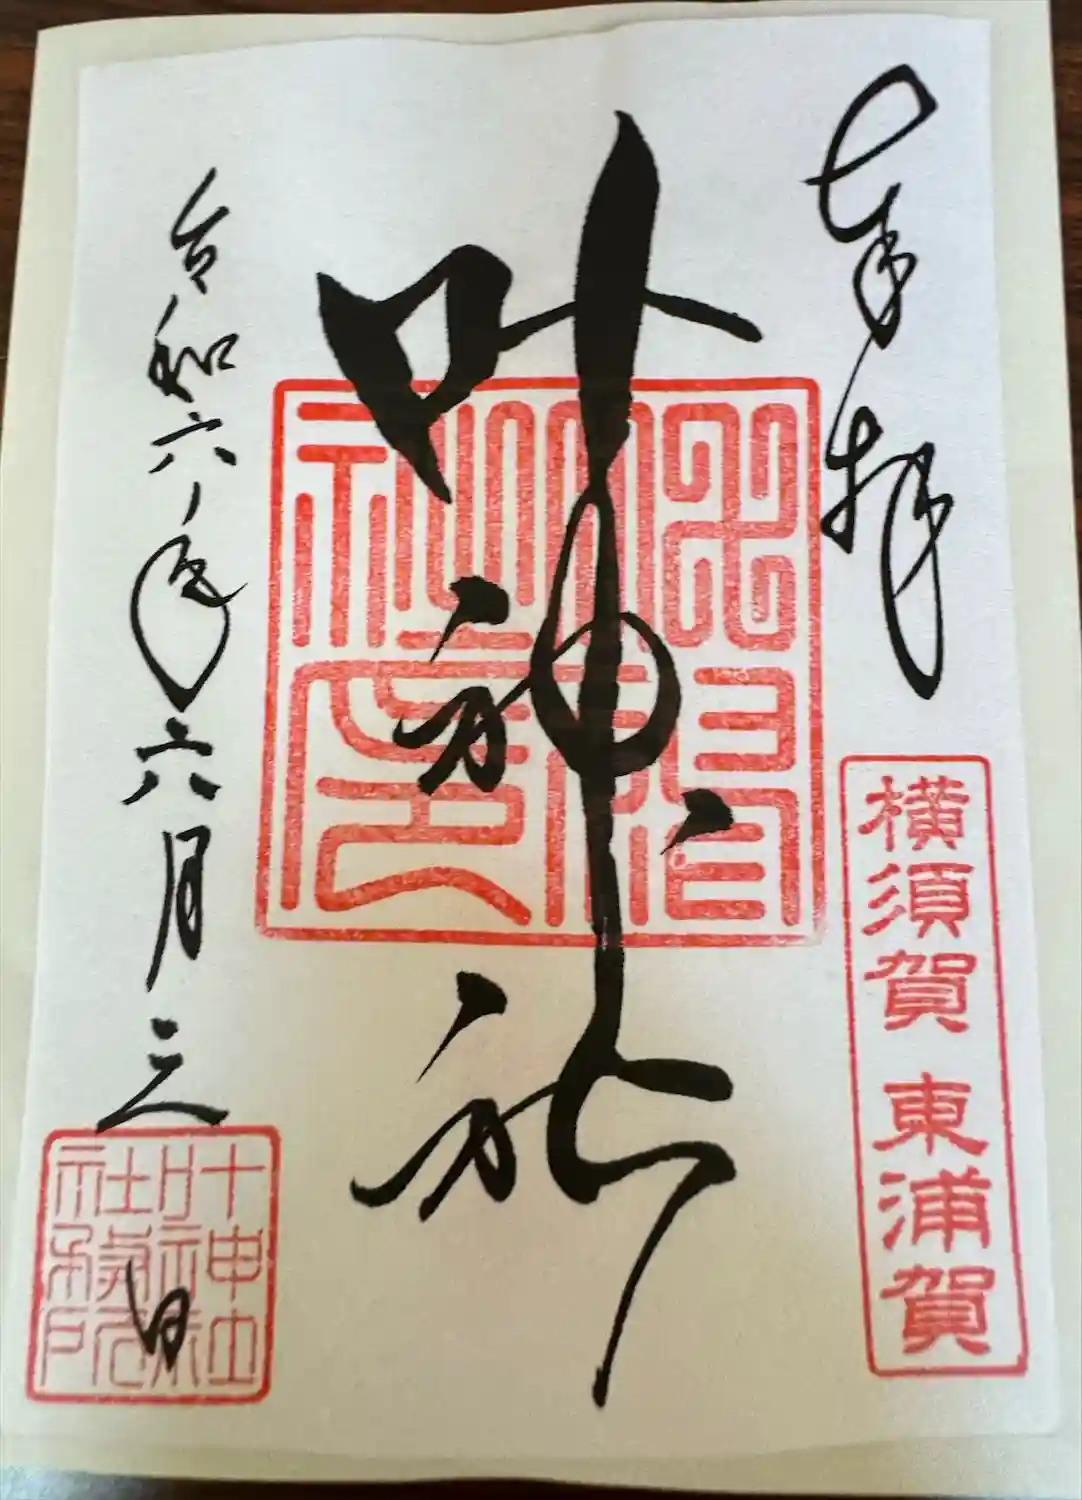 奉拝
横須賀 東浦賀
叶神社
令和六年六月三日
叶神社
社務所